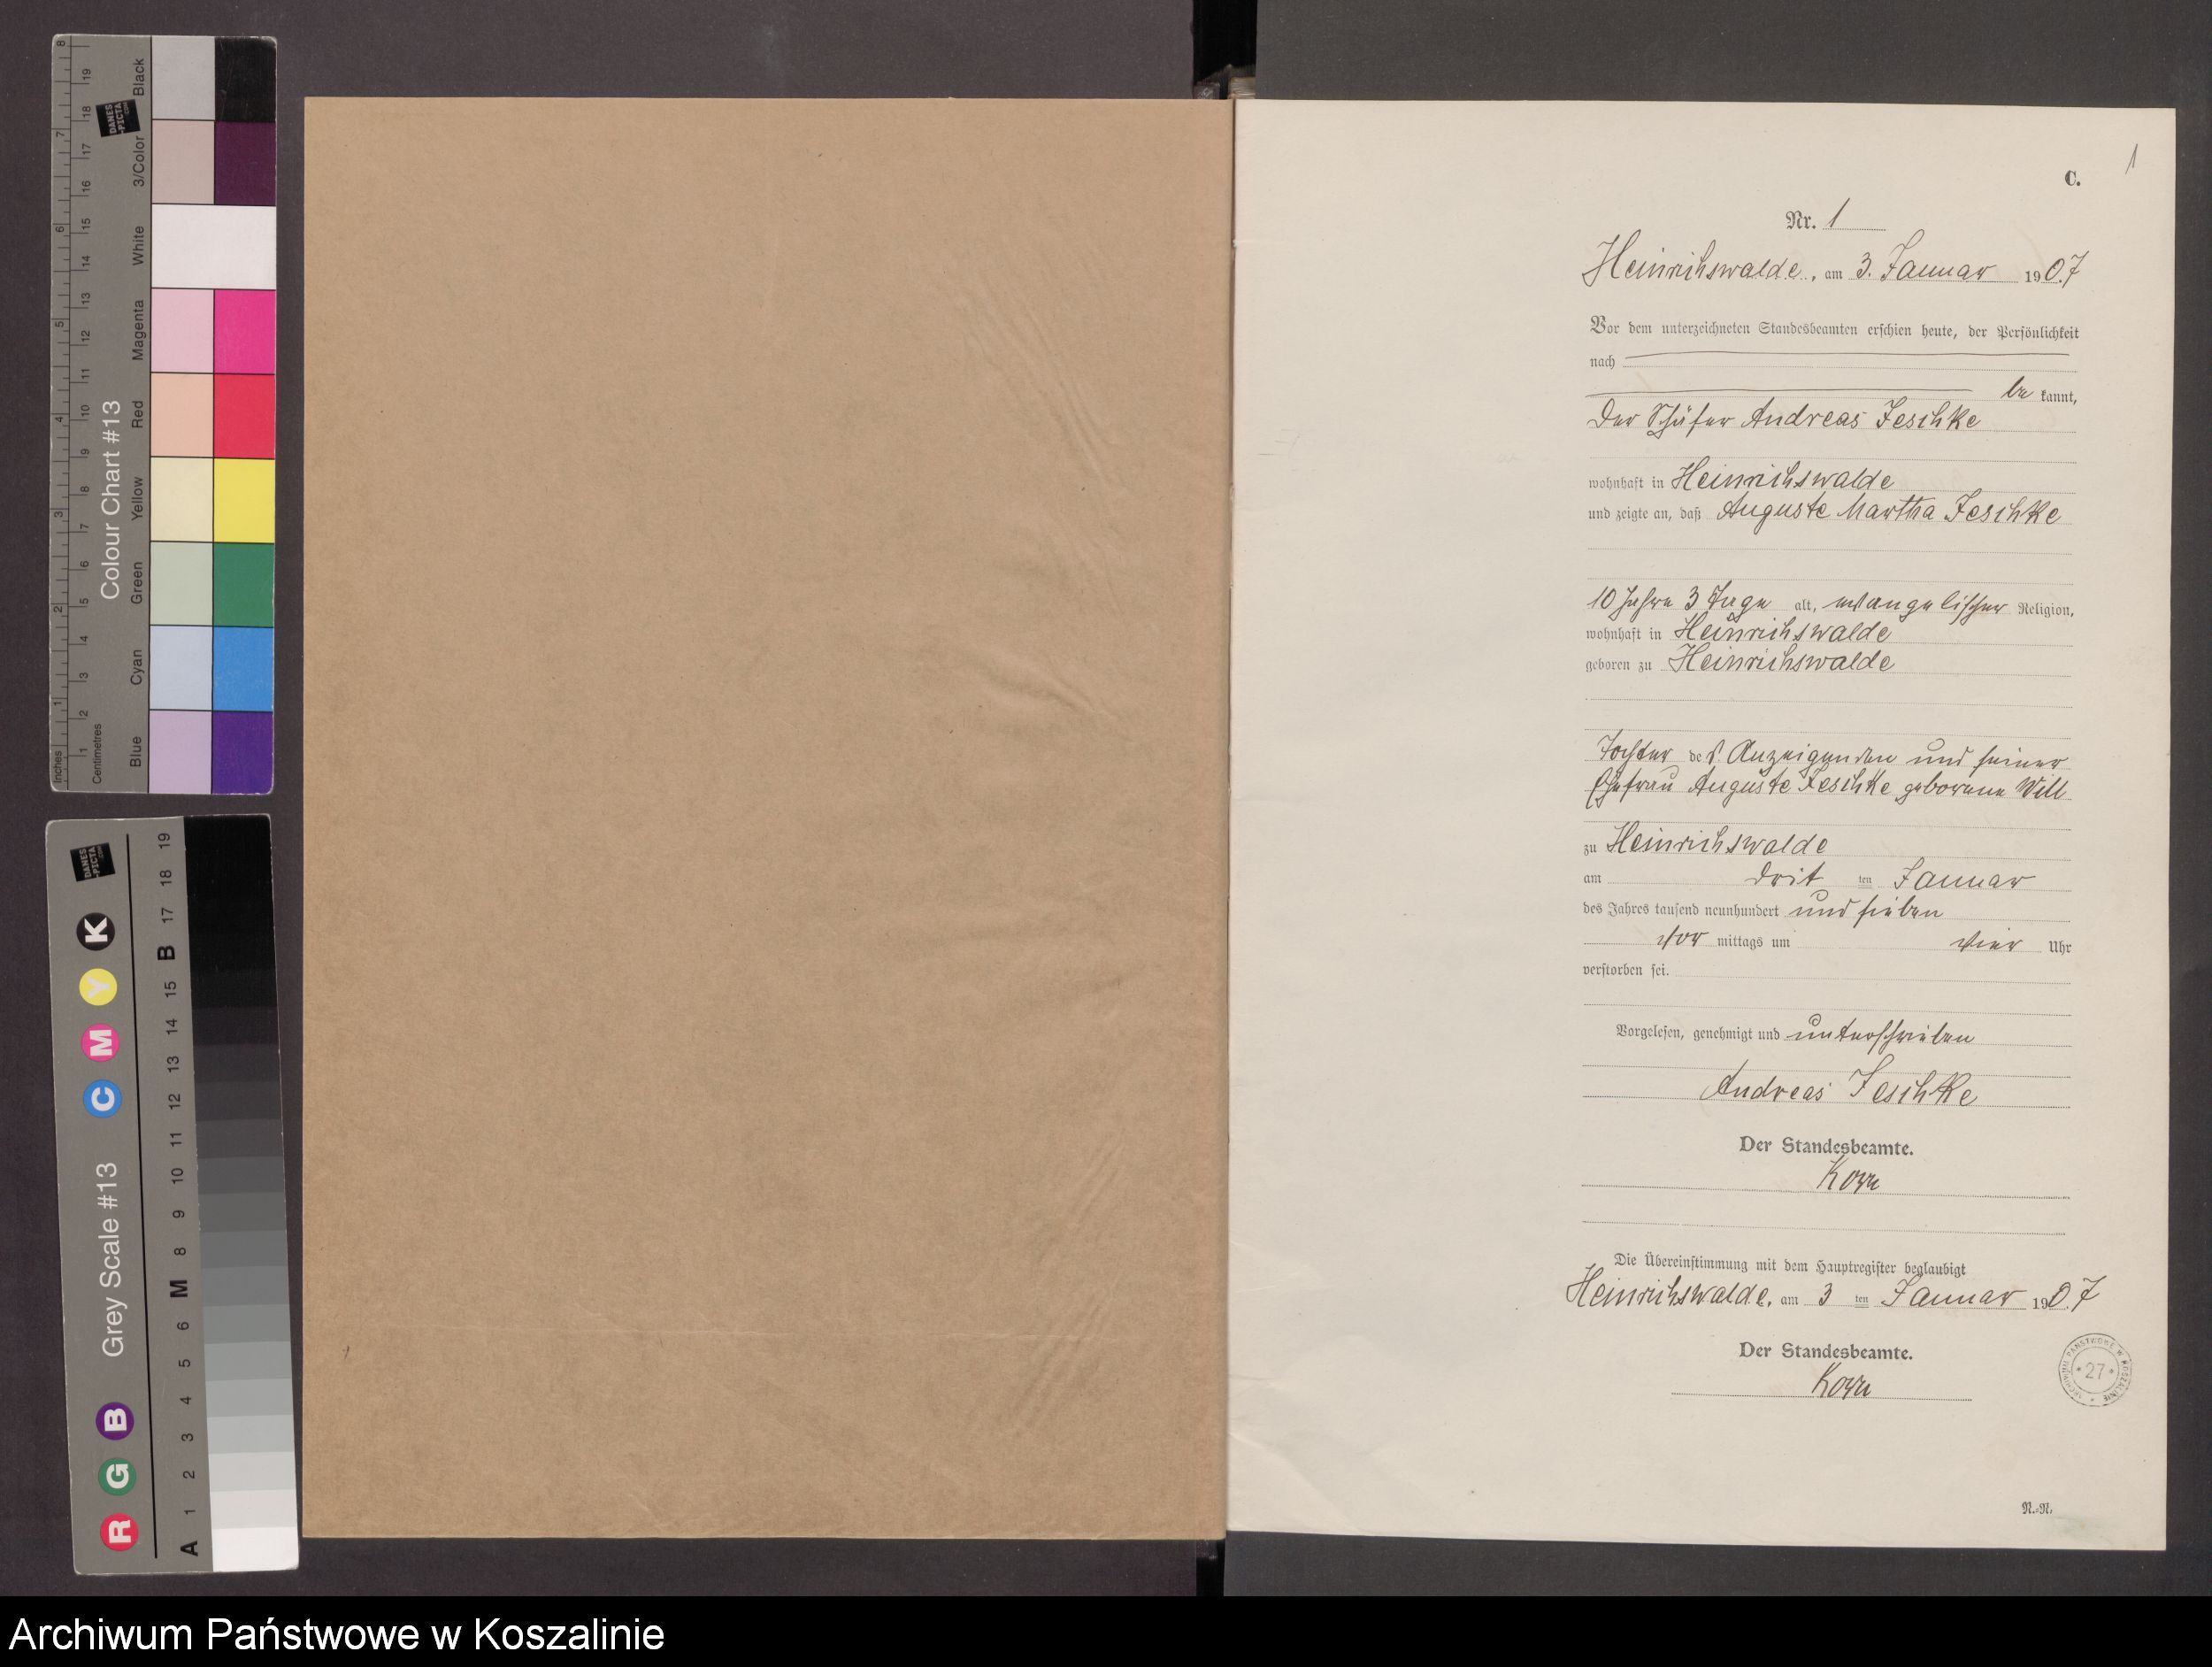 8 19 Black
18 DANES PICTA .COM
7 17 3/Color
16
6 15 White
14
13 Magenta
5 12
11
4 10 Red
9
8 Yellow
3 7
6 Green
2 5
4
3 Cyan
1 2
1 Blue
Inches Centimetres
Colour Chart #13
DANES PICTA .COM
K Y M C
Grey Scale #13
B G R
19 18 17 B 15 14 13 12 11 10 9 8 M 6 5 4 3 2 1 A
1
C.
Nr. 1
Heinrichswalde, am 3. Januar 1907
Vor dem unterzeichneten Standesbeamten erschien heute, der Persönlichkeit
nach
be kannt,
der Schäfer Andreas Jeschke
wohnhaft in Heinrichswalde
und zeigte an, daß Auguste Martha Jeschke
10 Jahre 3 Tage alt, evangelischer Religion,
wohnhaft in Heinrichswalde
geboren zu Heinrichswalde
Tochter des Anzeigenden und seiner
Ehefrau Auguste Jeschke geborene Will
zu Heinrichswalde
am drit ten Januar
des Jahres tausend neunhundert und sieben
vor mittags um vier Uhr
verstorben sei.
Vorgelesen, genehmigt und unterschrieben
Andreas Jeschke
Der Standesbeamte.
Korn
Die Übereinstimmung mit dem Hauptregister beglaubigt
Heinrichswalde, am 3 ten Januar 1907
Der Standesbeamte.
Korn
ARCHIWUM PAŃSTWOWE W KOSZALINIE
* 27 *
N.=N.
Archiwum Państwowe w Koszalinie